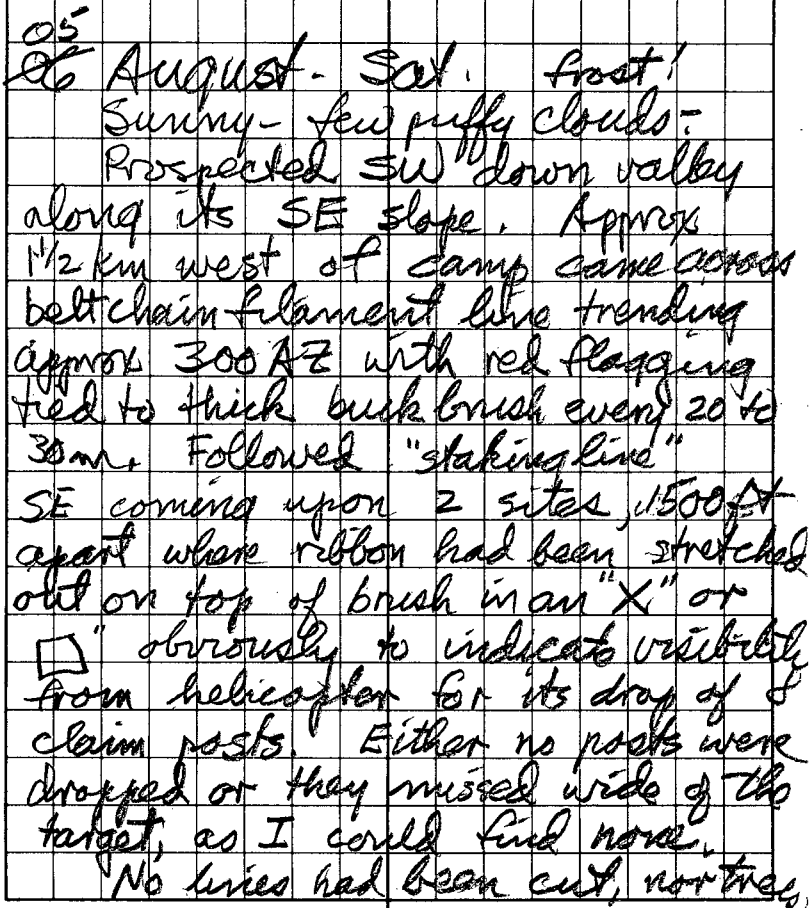 05
06 August - Sat. frost!
Sunny - few puffy clouds -
Prospected SW down valley
along its SE slope. Approx
1 1/2 km west of camp came across
belt chain filament line trending
approx 300 AZ with red flagging
tied to thick buckbrush every 20 to
30m. Followed "staking line"
SE coming upon 2 sites, 1500 ft
apart where ribbon had been stretched
out on top of brush in an "X" or
" obviously to indicate visibility
from helicopter for its drop of
claim posts. Either no posts were
dropped or they missed wide of the
target, as I could find none.
No lines had been cut, nor trees